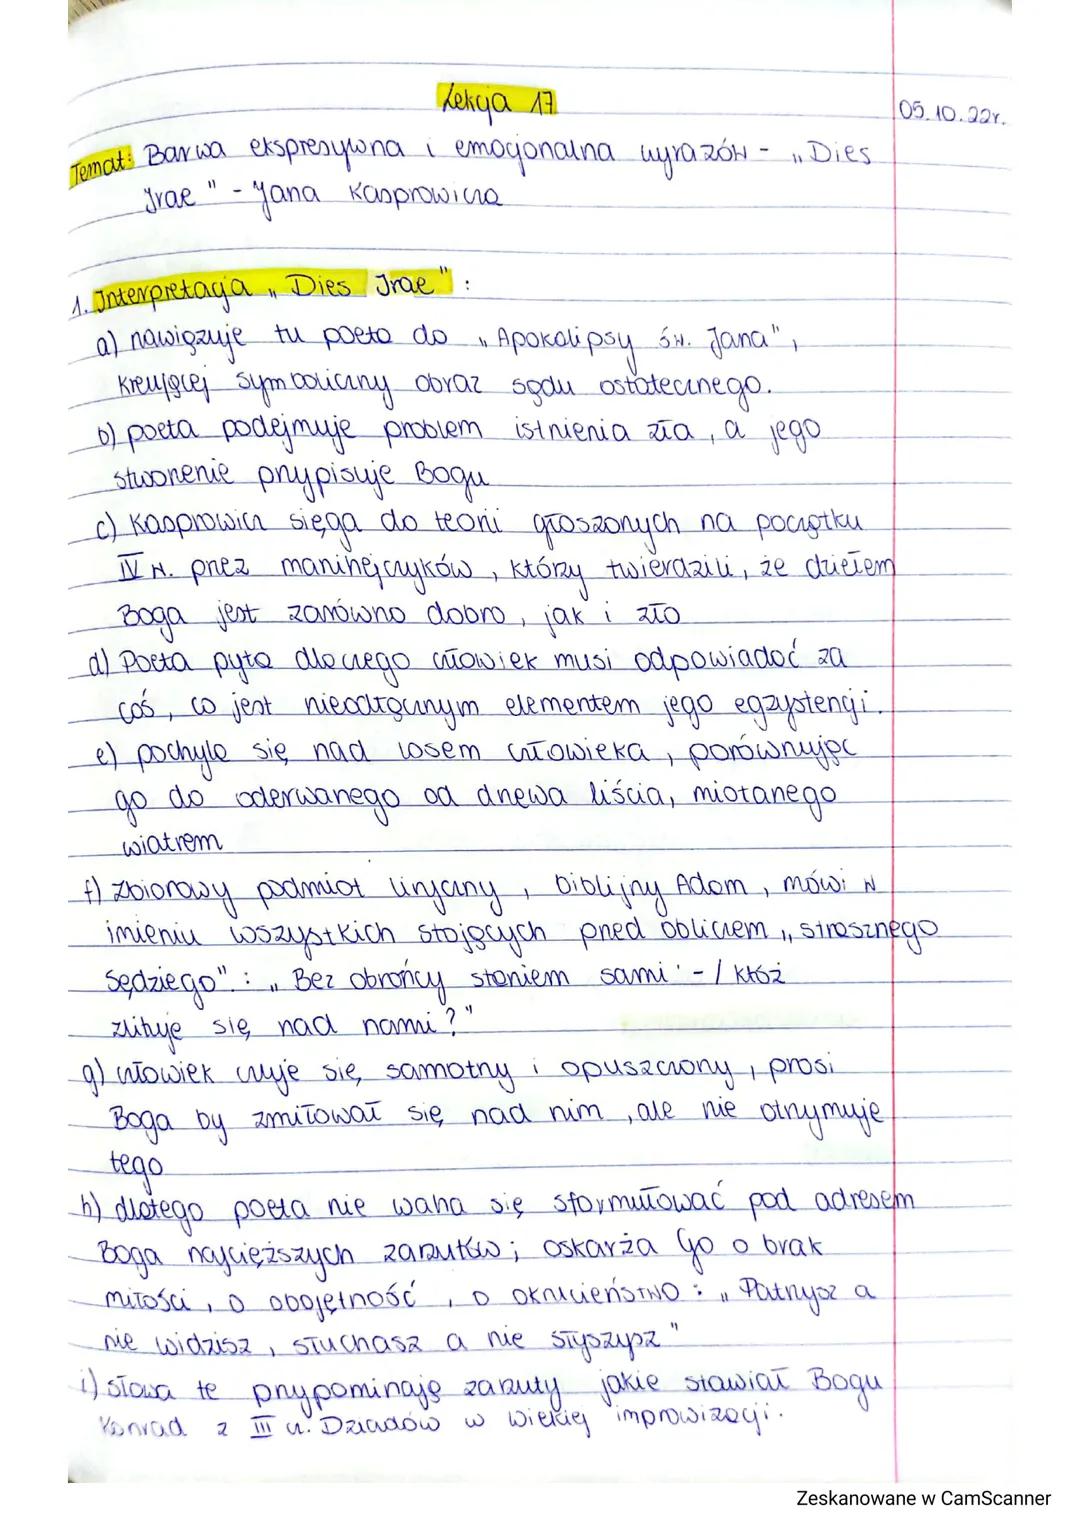 Lekcja 17
05.10.22r.
Temat: Barwa ekspresywna i emocjonalna wyrazów - „Dies
Irae" - Jana Kasprowicza
1. Interpretacja „Dies Irae" :
a) nawiązuje tu poeta do „Apokalipsy św. Jana",
kreującej symboliczny obraz sądu ostatecznego.
b) poeta podejmuje problem istnienia zła, a jego
stworzenie przypisuje Bogu
c) Kasprowicz sięga do teorii głoszonych na początku
IV w. przez maninejczyków, którzy twierdzili, że dziełem
Boga jest zarówno dobro, jak i zło
d) Poeta pyta dlaczego człowiek musi odpowiadać za
coś, co jest nieodłącznym elementem jego egzystencji.
e) pochyla się nad losem człowieka, porównując
go do oderwanego od drzewa liścia, miotanego
wiatrem
f) zbiorowy podmiot liryczny, biblijny Adam, mówi w
imieniu wszystkich stojących przed obliczem „strasznego
Sędziego". : „Bez obrońcy staniem sami - / któż
zlituje się nad nami?"
g) człowiek czuje się samotny i opuszczony, prosi
Boga by zmiłował się nad nim, ale nie otrzymuje
tego
h) dlatego poeta nie waha się sformułować pod adresem
Boga najcięższych zarzutów; oskarża Go o brak
miłości, o obojętność, o okrucieństwo: „Patrzysz a
nie widzisz, słuchasz a nie słyszysz"
i) słowa te przypominają zarzuty jakie stawiał Bogu
Konrad z III cz. Dziadów w wielkiej improwizacji.
Zeskanowane w CamScanner